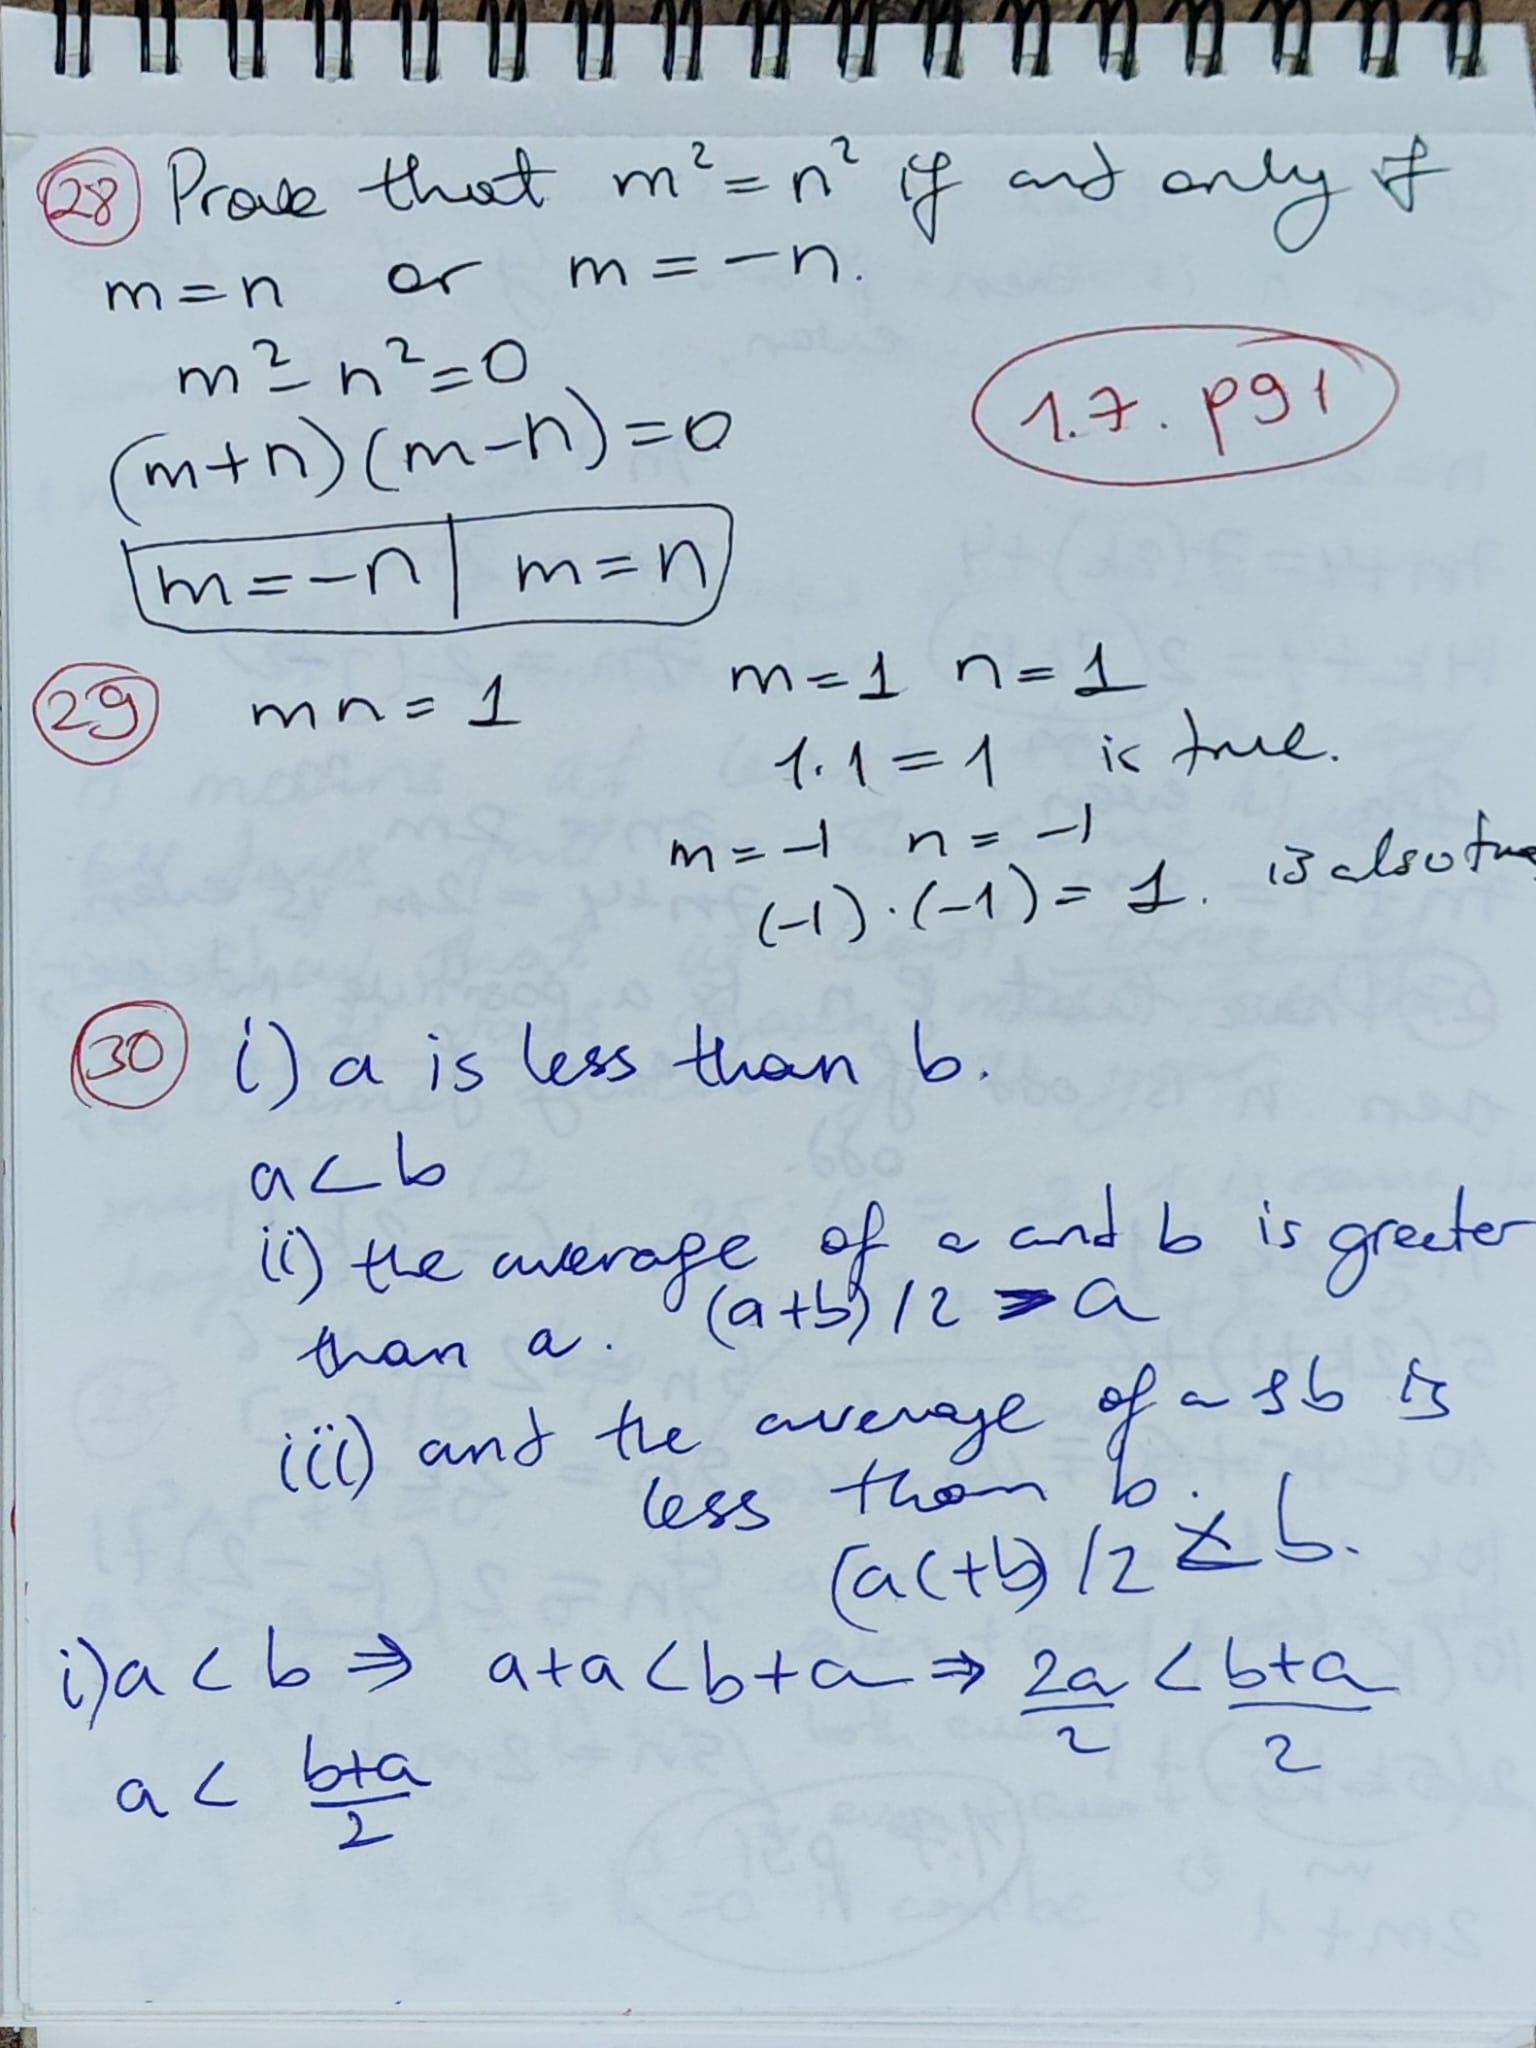 28 Prove that m² = n² if and only if
m = n or m = -n.
m² - n² = 0
(m+n)(m-n) = 0
1.7. pg1
m = -n | m = n
29 mn = 1 m = 1 n = 1
1.1 = 1 is true.
m = -1 n = -1
(-1).(-1) = 1. is also true
30 i) a is less than b.
a < b
ii) the average of a and b is greater
than a. (a+b)/2 > a
iii) and the average of a & b is
less than b.
(a+b)/2 < b.
i) a < b ⇒ a+a < b+a ⇒ 2a/2 < b+a/2
a < b+a/2